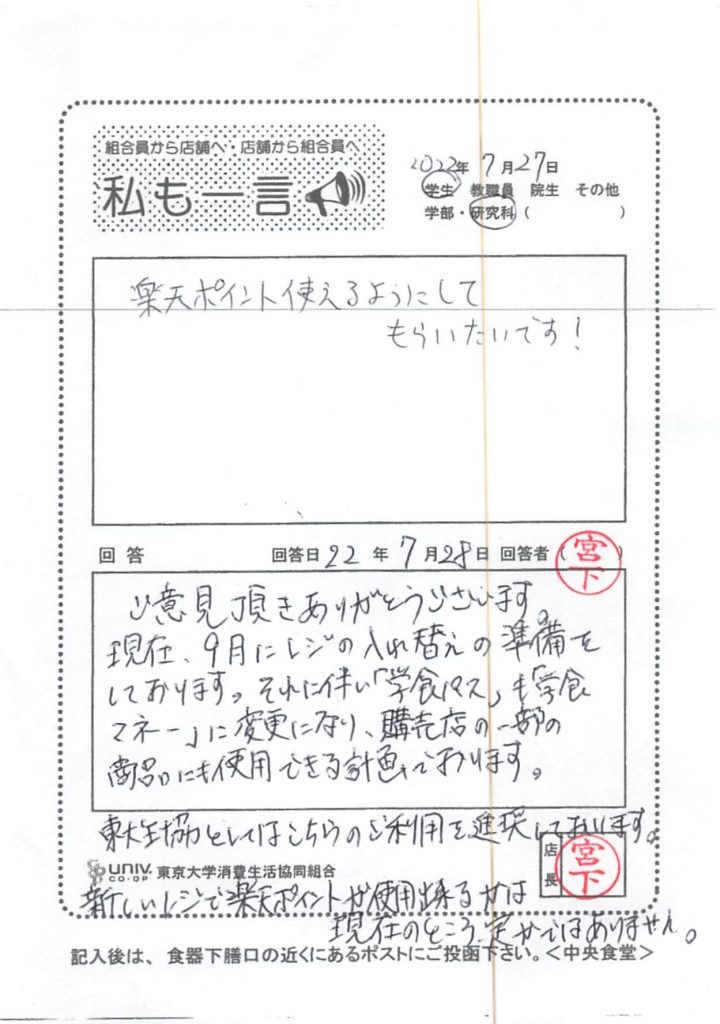 組合員から店舗へ・店舗から組合員へ
私も一言
2022年 7月27日
学生 教職員 院生 その他
学部・研究科（ ）
楽天ポイント使えるようにして
もらいたいです！
回答 回答日 22 年 7月28日 回答者（宮下）
ご意見頂きありがとうございます。
現在、9月にレジの入れ替えの準備を
しております。それに伴い「学食パス」も「学食
マネー」に変更になり、購売店の一部の
商品にも使用できる計画でおります。
東大生協としてはこちらのご利用を推奨しております。
店長 宮下
UNIV. CO-OP 東京大学消費生活協同組合
新しいレジで楽天ポイントが使用出来るかは
現在のところ、定かではありません。
記入後は、食器下膳口の近くにあるポストにご投函下さい。＜中央食堂＞